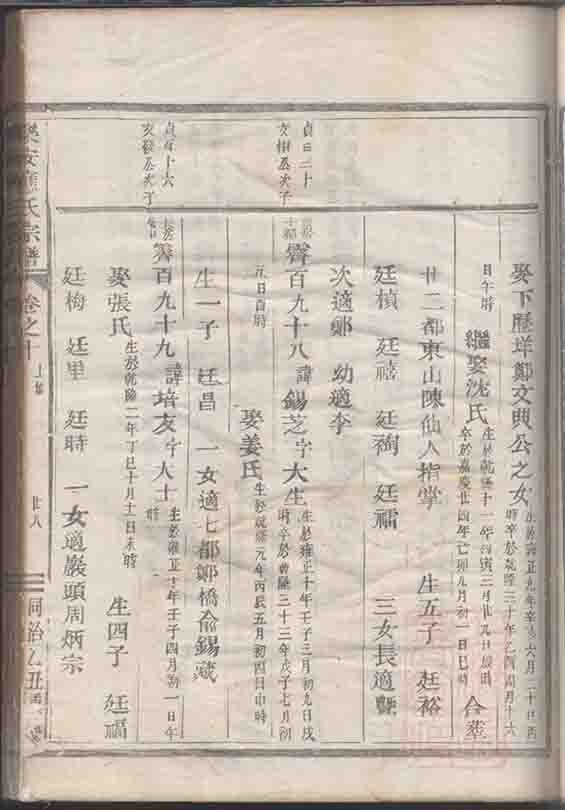 娶下歷垟鄭文興公之女
生於雍正九年辛亥六月二十日酉
時卒於乾隆三十年乙酉四月十六
日午時
繼娶沈氏
生於乾隆十一年丙寅三月廿九日辰時
卒於嘉慶廿四年己卯九月初一日巳時
合葬
廿二都東山陳仙人指掌 生五子 廷裕
廷楨 廷禧 廷祹 廷礝 三女長適
次適鄭 幼適李
貞百二十
文樹公次子
霽百九十八 諱錫芝字大生
生於雍正十年壬子三月初九日戌
時卒於乾隆三十三年戊子七月初
元日酉時
娶姜氏
生於乾隆元年丙辰五月初四日申時
生一子 廷昌 一女適七都鄭橋俞錫葳
貞百十六
次子
霽百九十九 諱培友字大士
生於雍正十年壬子四月初一日午
時
娶張氏
生於乾隆二年丁巳十月十一日未時
生四子 廷福
廷梅 廷里 廷時 一女適巖頭周炳宗
氏宗譜 卷之十 廿八 同治乙丑